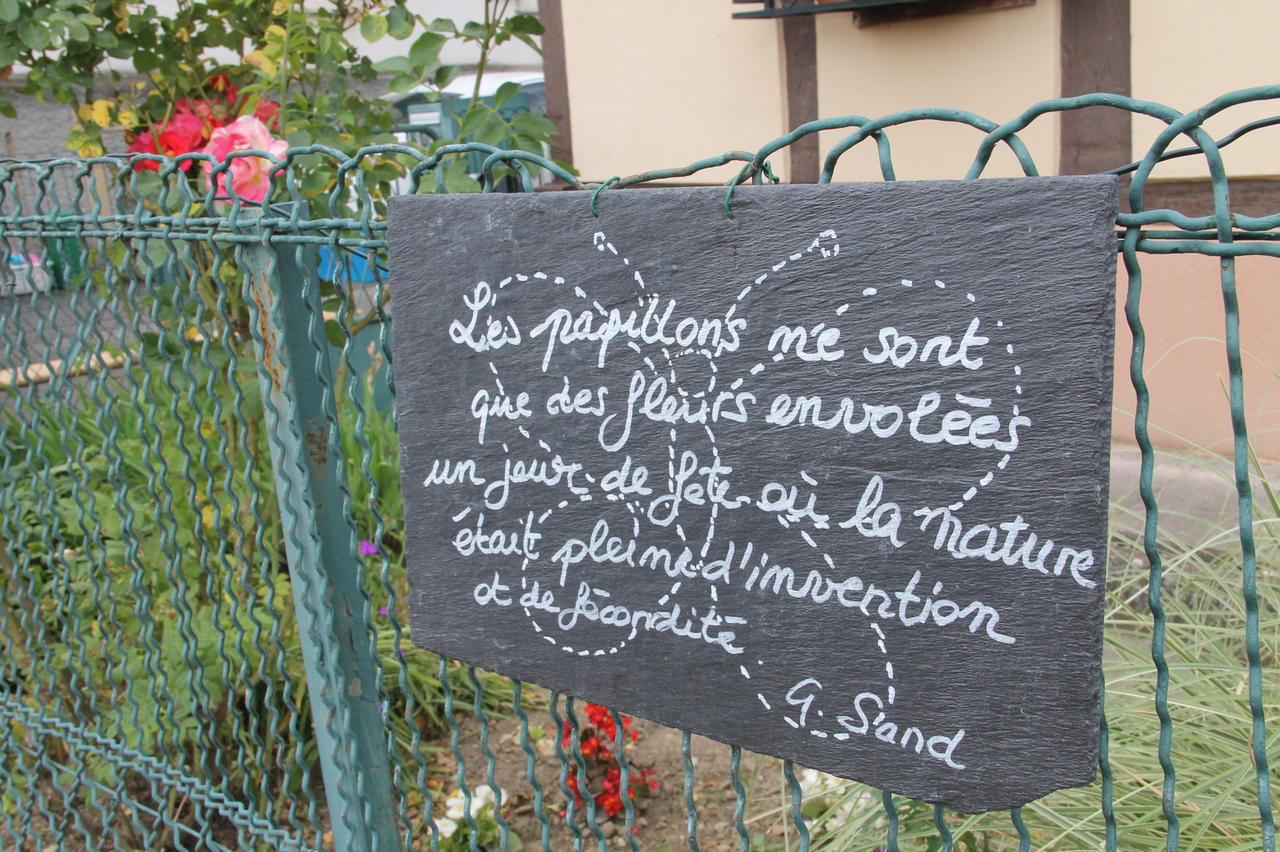 Les papillons ne sont
que des fleurs envolées
un jour de fête où la nature
était pleine d'invention
et de fécondité
G. Sand